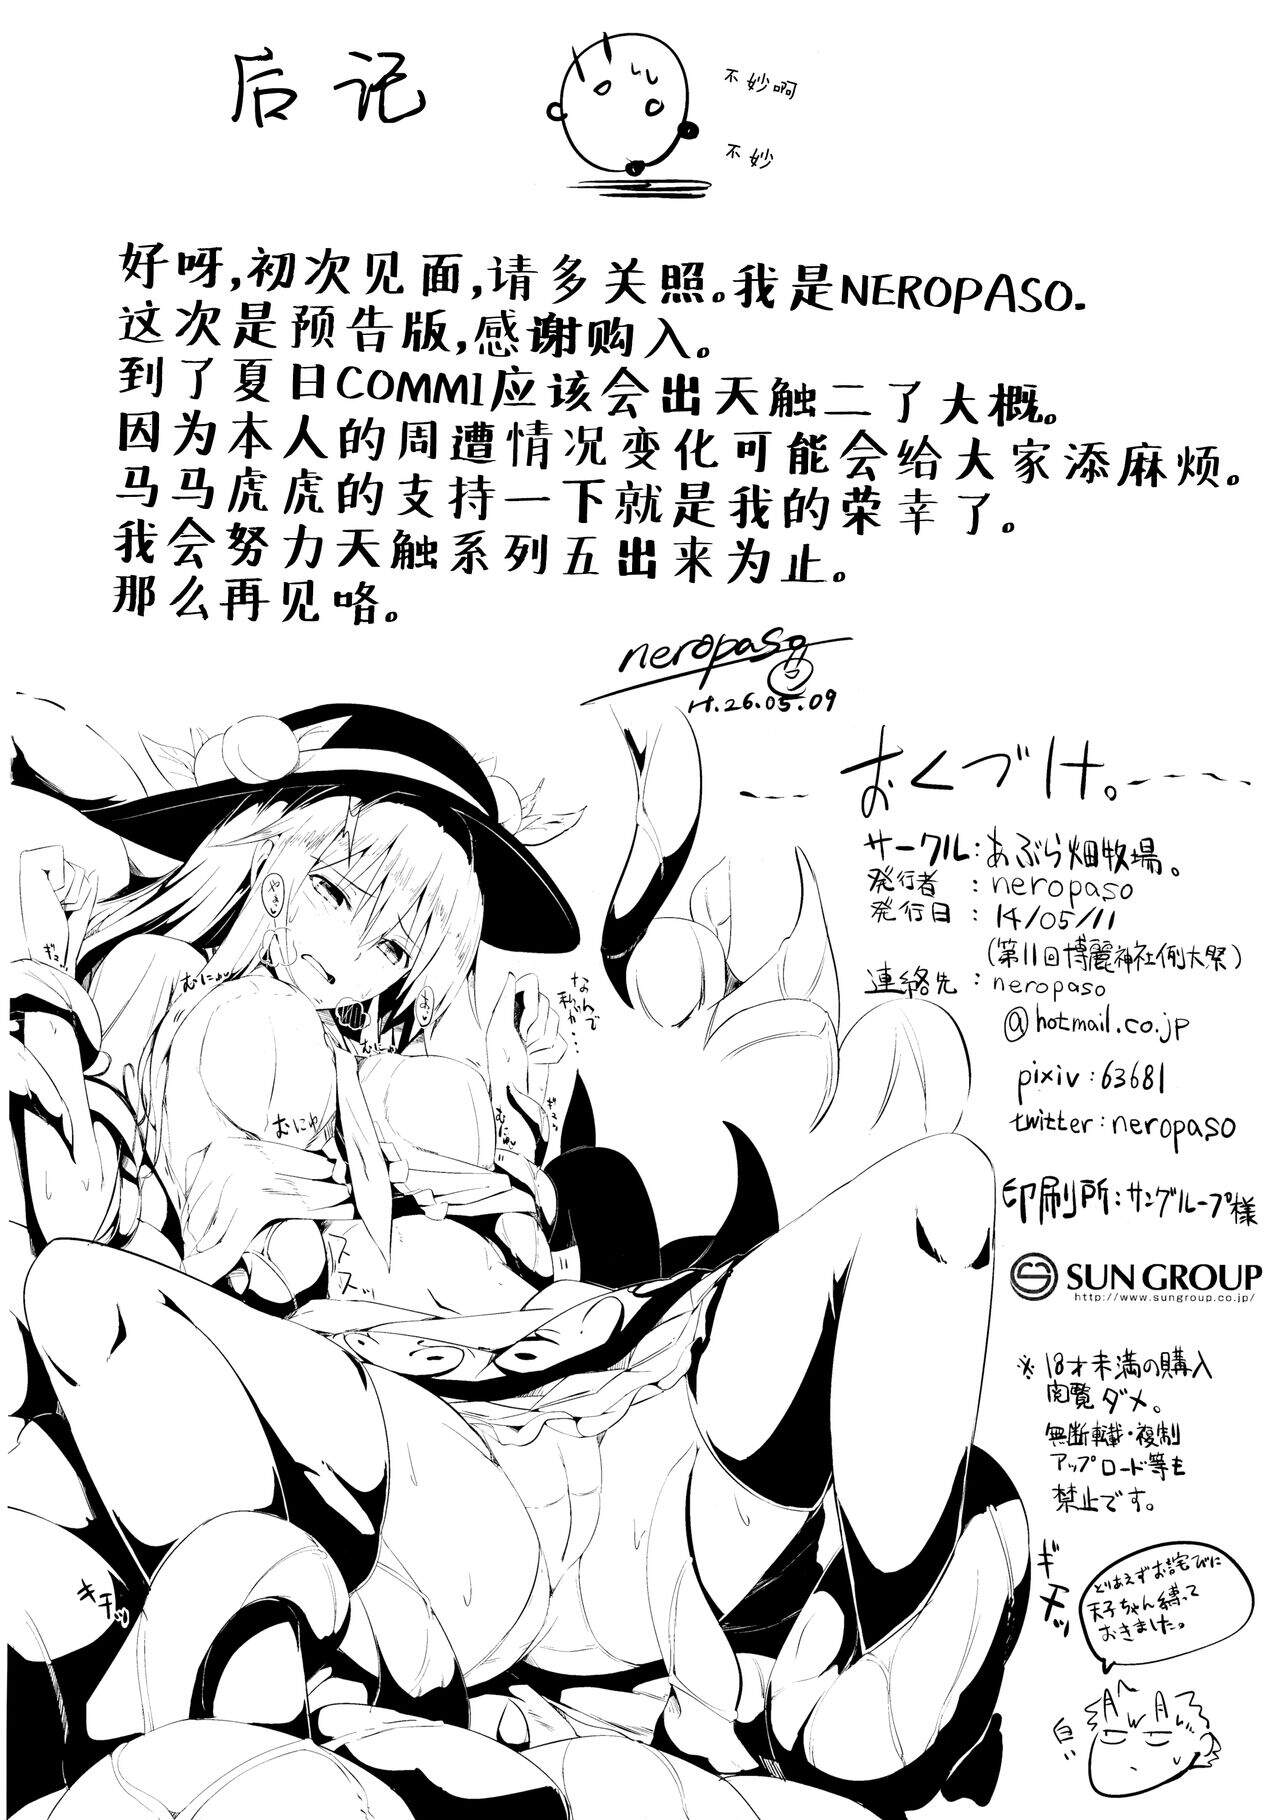 后记
不妙啊
不妙
好呀,初次见面,请多关照。我是NEROPASO.
这次是预告版,感谢购入。
到了夏日COMMI应该会出天触二了大概。
因为本人的周遭情况变化可能会给大家添麻烦。
马马虎虎的支持一下就是我的荣幸了。
我会努力天触系列五出来为止。
那么再见咯。
neropaso
H.26.05.09
おくづけ。
サークル:あぶら畑牧場。
発行者:neropaso
発行日:14/05/11
(第11回博麗神社例大祭)
連絡先:neropaso
@hotmail.co.jp
pixiv:63681
twitter:neropaso
印刷所:サングループ様
SUN GROUP
http://www.sungroup.co.jp/
※18才未満の購入
閲覧ダメ。
無断転載・複制
アップロード等も
禁止です。
とりあえずお詫びに
天子ちゃん縛って
おきました。
なんで
私が…
むにゅ
むにゅ
ギチッ
キチッ